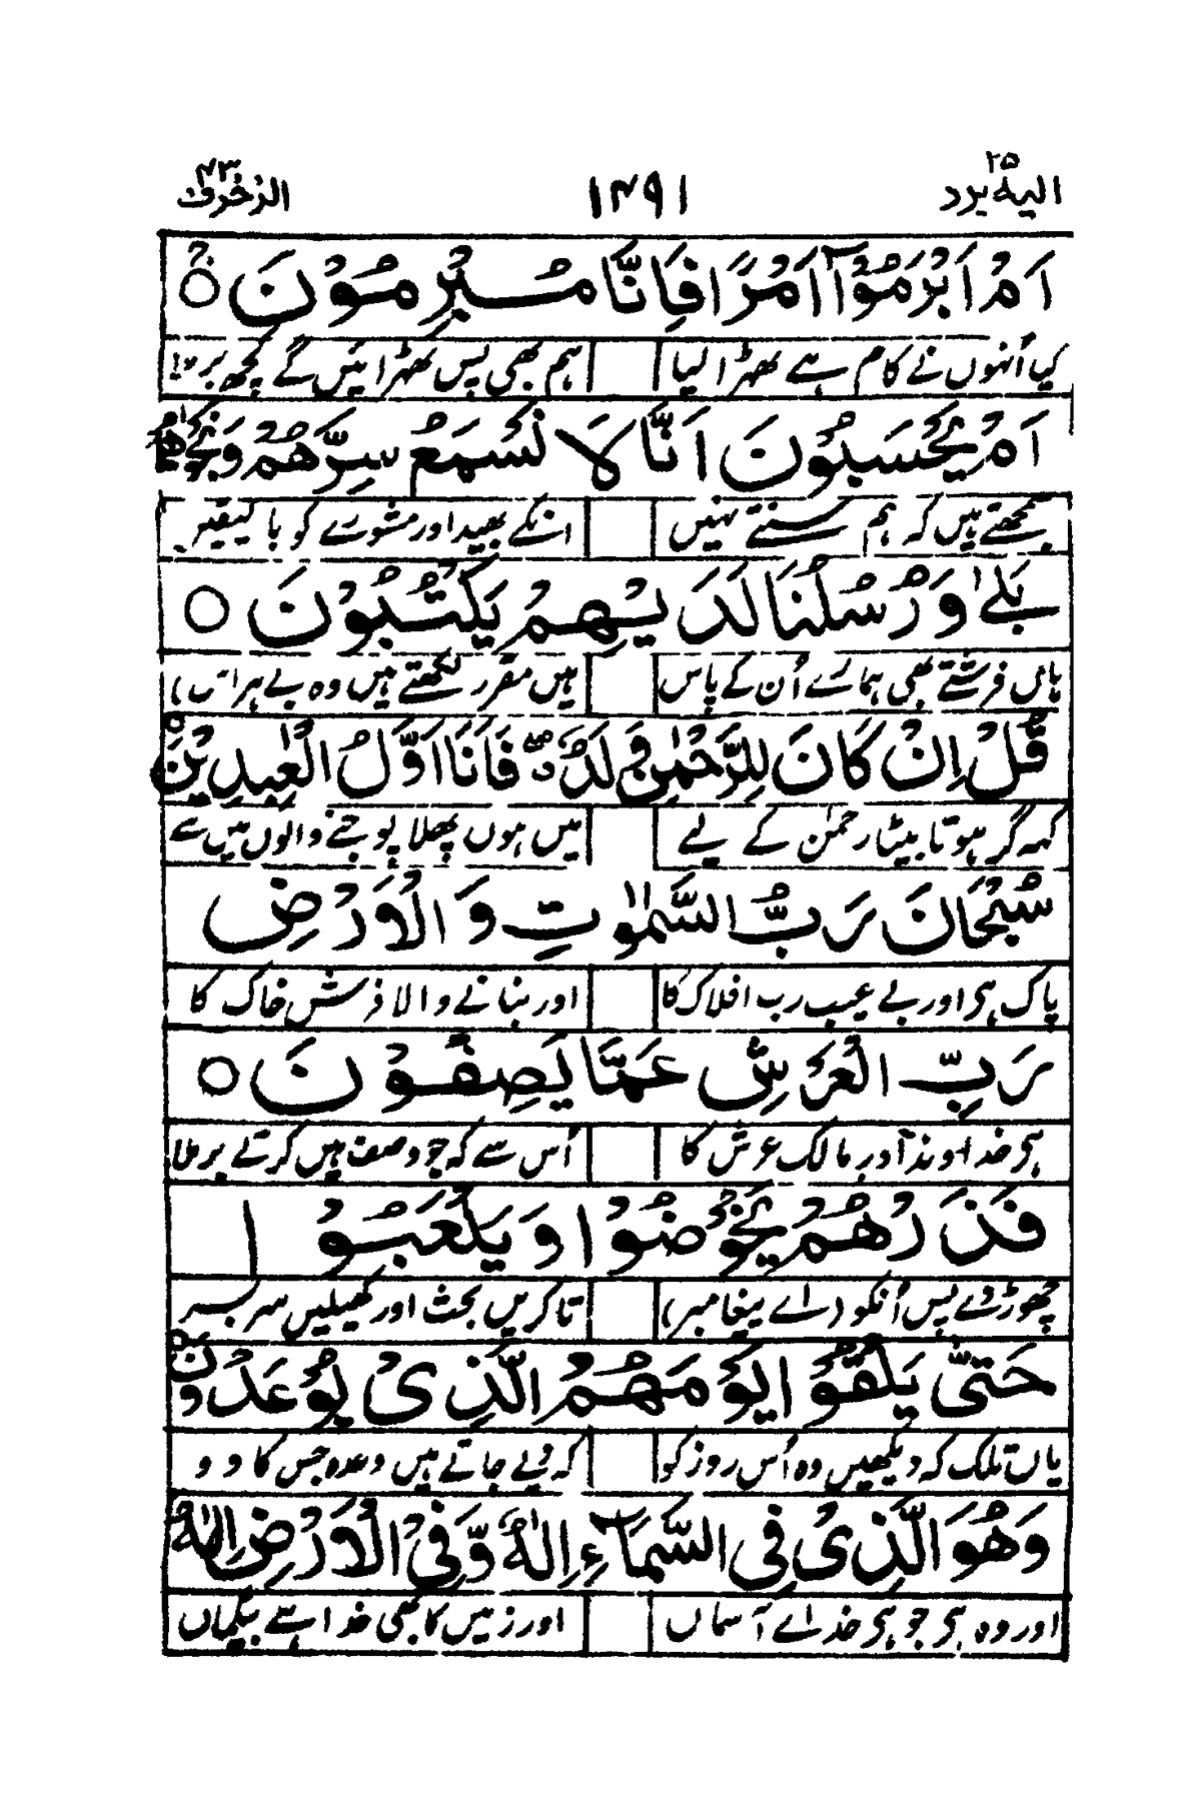 الیہ یرد ۲۵ ۱۴۹۱ الزخرف ۴۳
اَمْ اَبْرَمُوْٓا اَمْرًا فَاِنَّا مُبْرِمُوْنَ ○
کیا اُنہوں نے کام ہے ٹھہرا لیا ہم بھی پس ٹھہرائیں گے کچھ برملا
اَمْ یَحْسَبُوْنَ اَنَّا لَا نَسْمَعُ سِرَّهُمْ وَنَجْوٰىهُمْ
سمجھتے ہیں کہ ہم سنتے نہیں انکے بھید اور مشورے کو بالیقیں
بَلٰی وَرُسُلُنَا لَدَیْهِمْ یَكْتُبُوْنَ ○
ہاں فرشتے بھی ہمارے اُن کے پاس ہیں مقرر لکھتے ہیں وہ بے ہراس
قُلْ اِنْ كَانَ لِلرَّحْمٰنِ وَلَدٌ فَاَنَا اَوَّلُ الْعٰبِدِیْنَ ○
کہہ گر ہوتا بیٹا رحمٰن کے لیے میں ہوں پہلا پوجنے والوں میں سے
سُبْحَانَ رَبِّ السَّمٰوٰتِ وَالْاَرْضِ
پاک ہی اور بے عیب رب افلاک کا اور بنانے والا فرش خاک کا
رَبِّ الْعَرْشِ عَمَّا یَصِفُوْنَ ○
ہی خداوند اور مالک عرش کا اُس سے کہ جو وصف ہیں کرتے برملا
فَذَرْهُمْ یَخُوْضُوْا وَیَلْعَبُوْا
چھوڑ دے پس اُنکو (اے پیغامبر) تا کریں بحث اور کھیلیں سربسر
حَتّٰی یُلٰقُوْا یَوْمَهُمُ الَّذِیْ یُوْعَدُوْنَ ○
یاں تلک کہ دیکھیں وہ اُس روز کو کہ دیے جاتے ہیں وعدہ جس کا وو
وَهُوَ الَّذِیْ فِی السَّمَآءِ اِلٰهٌ وَّفِی الْاَرْضِ اِلٰهٌ
اور وہ ہی جو ہی خدائے آسماں اور زمیں کا بھی خدا ہے بیگماں